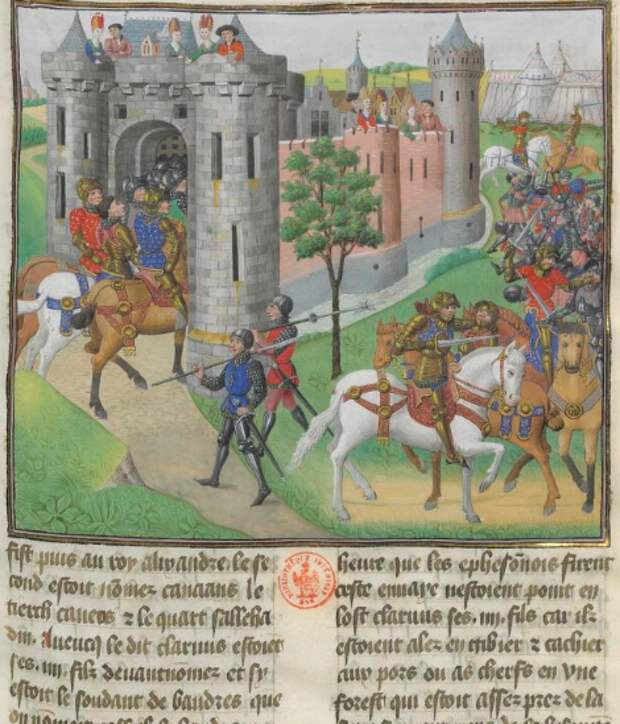 fist puis au roy alixandre. le se
cond estoit nōmez canaans le
tierch caneos ⁊ le quart salleha
din. Aueucq le dit claruus estoiēt
ses .iiii. filz deuant nomez et sy
estoit le soudant de baudres que
heure que les ephesōnois firent
ceste enuaye nestoient point en
lost claruus ses .iiii. filz car ilz
estoient alez en gibier ⁊ cachier
aux pors ou as cherfs en vne
forest qui estoit assez prez de la